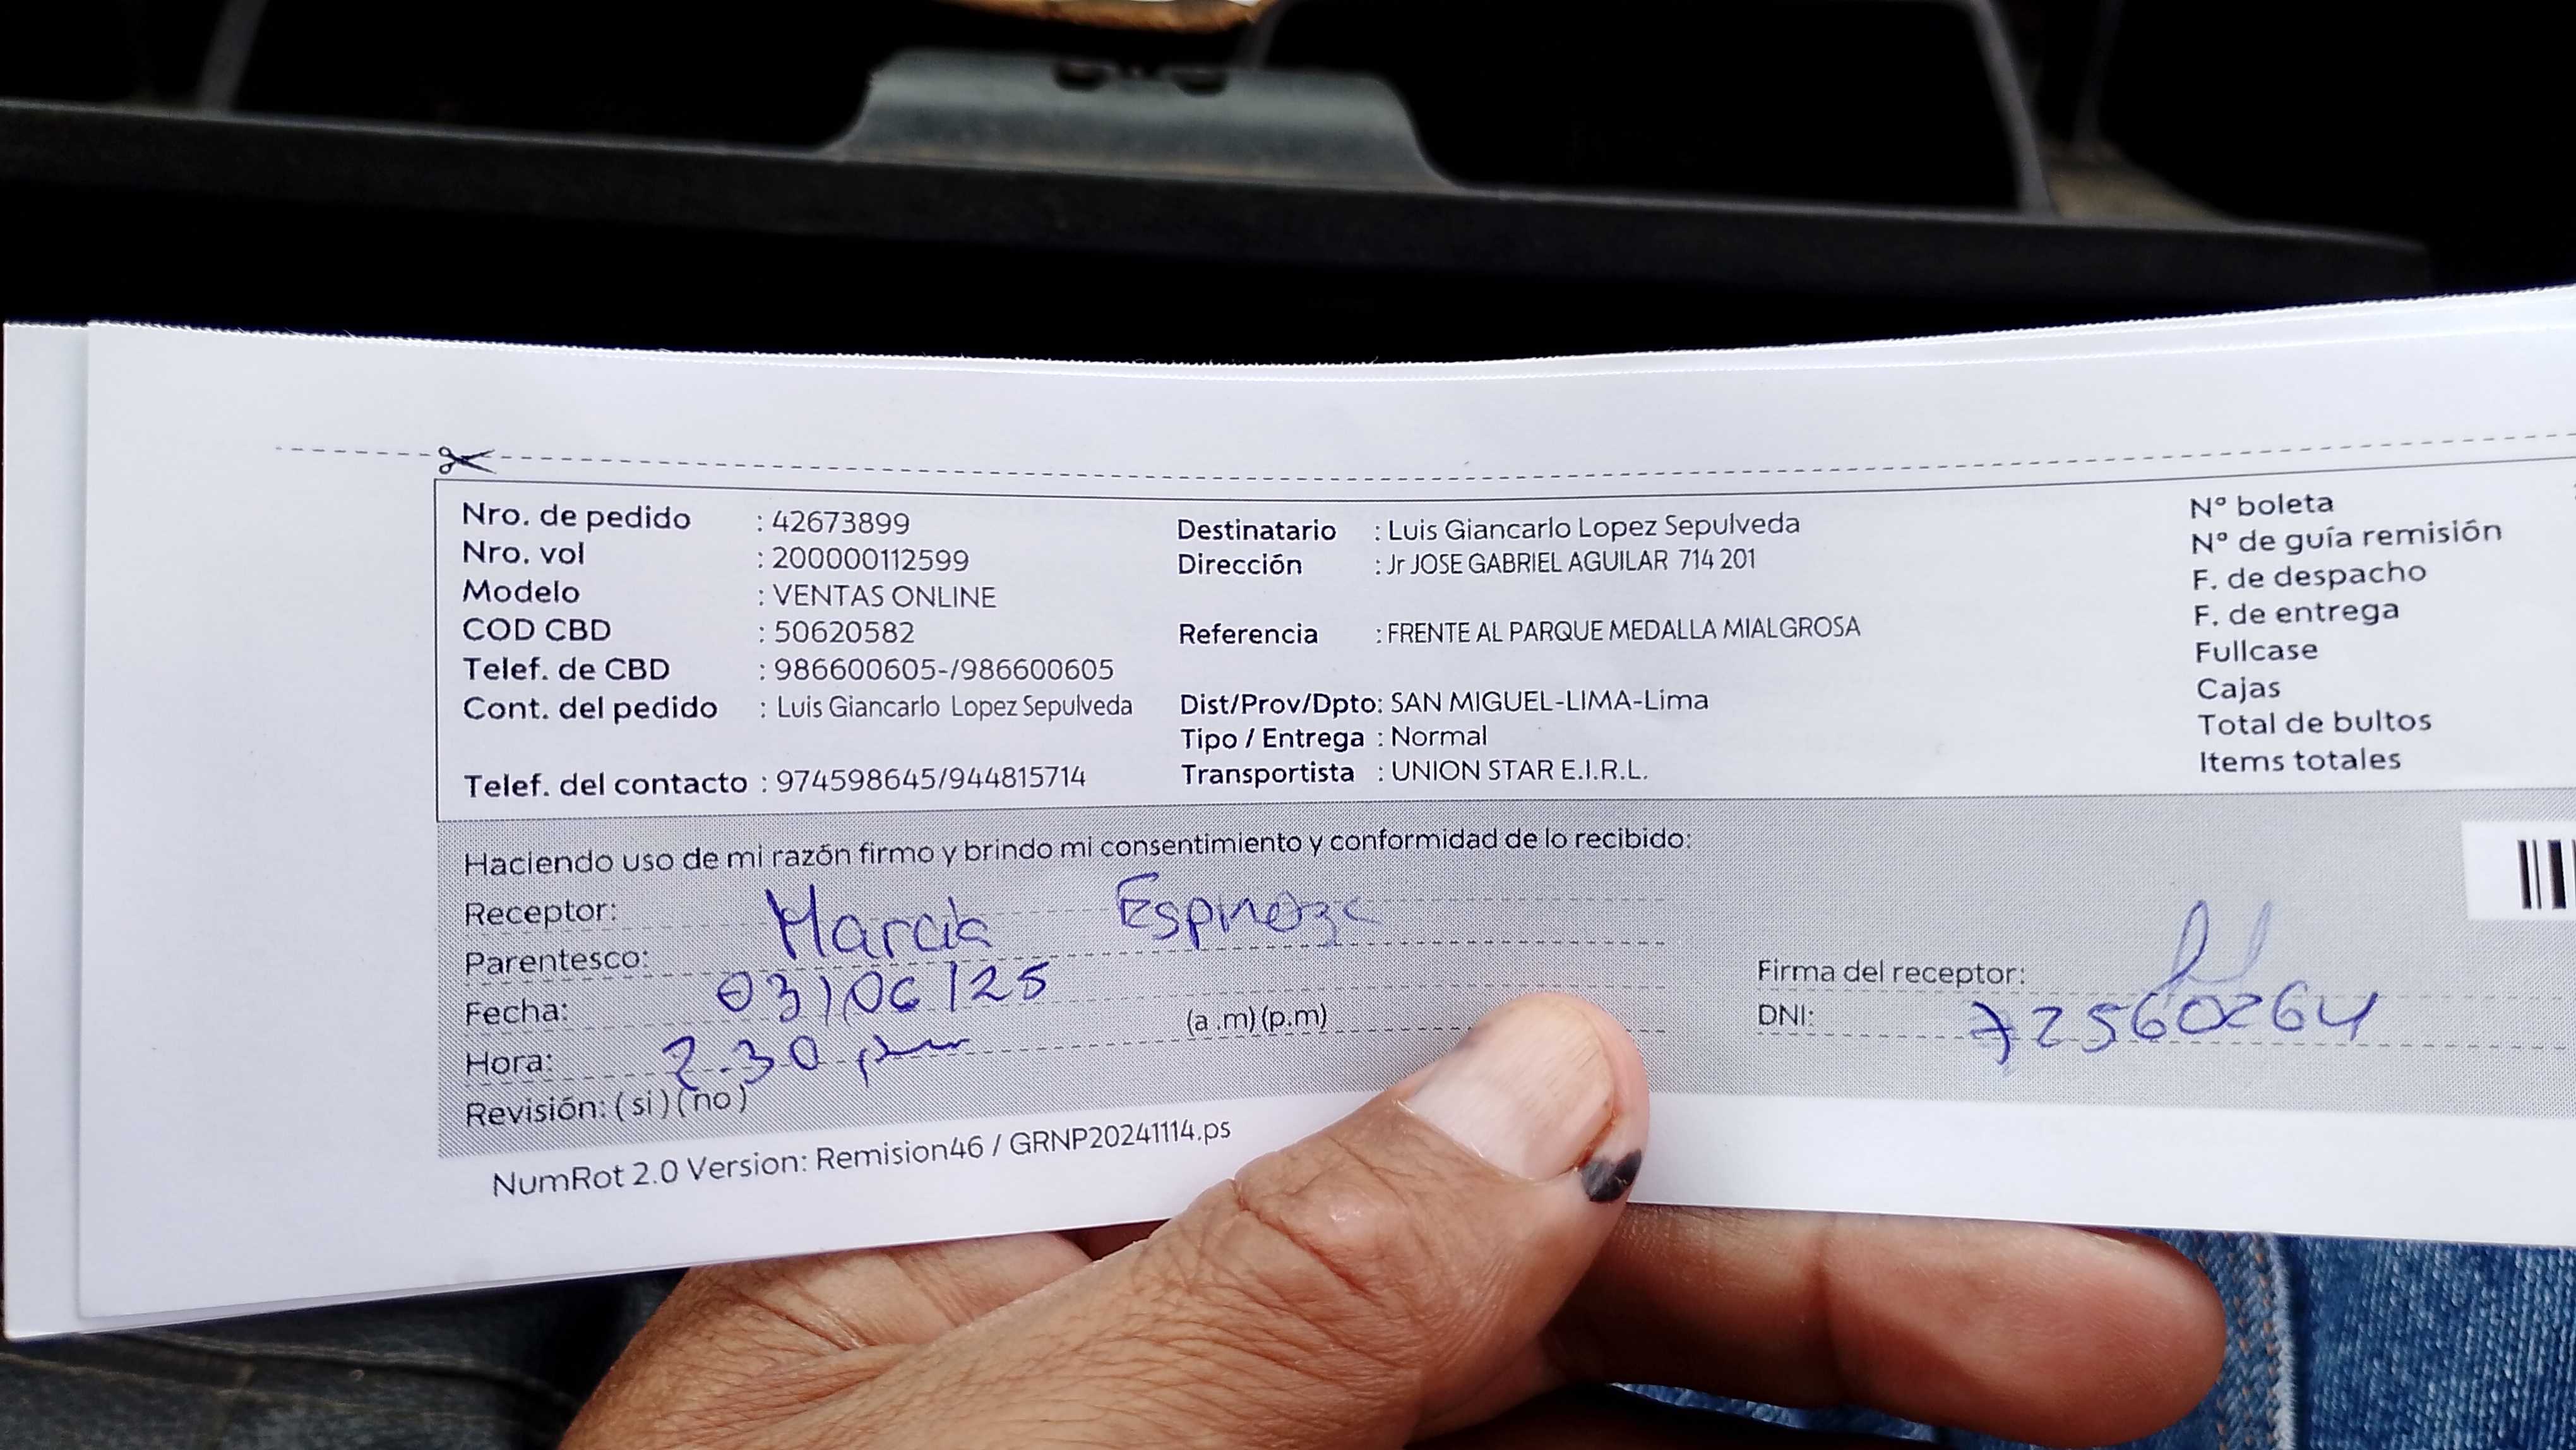 Nro. de pedido : 42673899
Nro. vol : 200000112599
Modelo : VENTAS ONLINE
COD CBD : 50620582
Telef. de CBD : 986600605-/986600605
Cont. del pedido : Luis Giancarlo Lopez Sepulveda
Telef. del contacto : 974598645/944815714
Destinatario : Luis Giancarlo Lopez Sepulveda
Dirección : Jr JOSE GABRIEL AGUILAR 714 201
Referencia : FRENTE AL PARQUE MEDALLA MIALGROSA
Dist/Prov/Dpto: SAN MIGUEL-LIMA-Lima
Tipo / Entrega : Normal
Transportista : UNION STAR E.I.R.L.
Nº boleta
Nº de guía remisión
F. de despacho
F. de entrega
Fullcase
Cajas
Total de bultos
Items totales
Haciendo uso de mi razón firmo y brindo mi consentimiento y conformidad de lo recibido:
Receptor: Marcia Espinoza
Parentesco:
Fecha: 03/06/25
Hora: 2.30 pm (a .m) (p.m)
Revisión: (si) (no)
Firma del receptor:
DNI: 72560264
NumRot 2.0 Version: Remision46 / GRNP20241114.ps